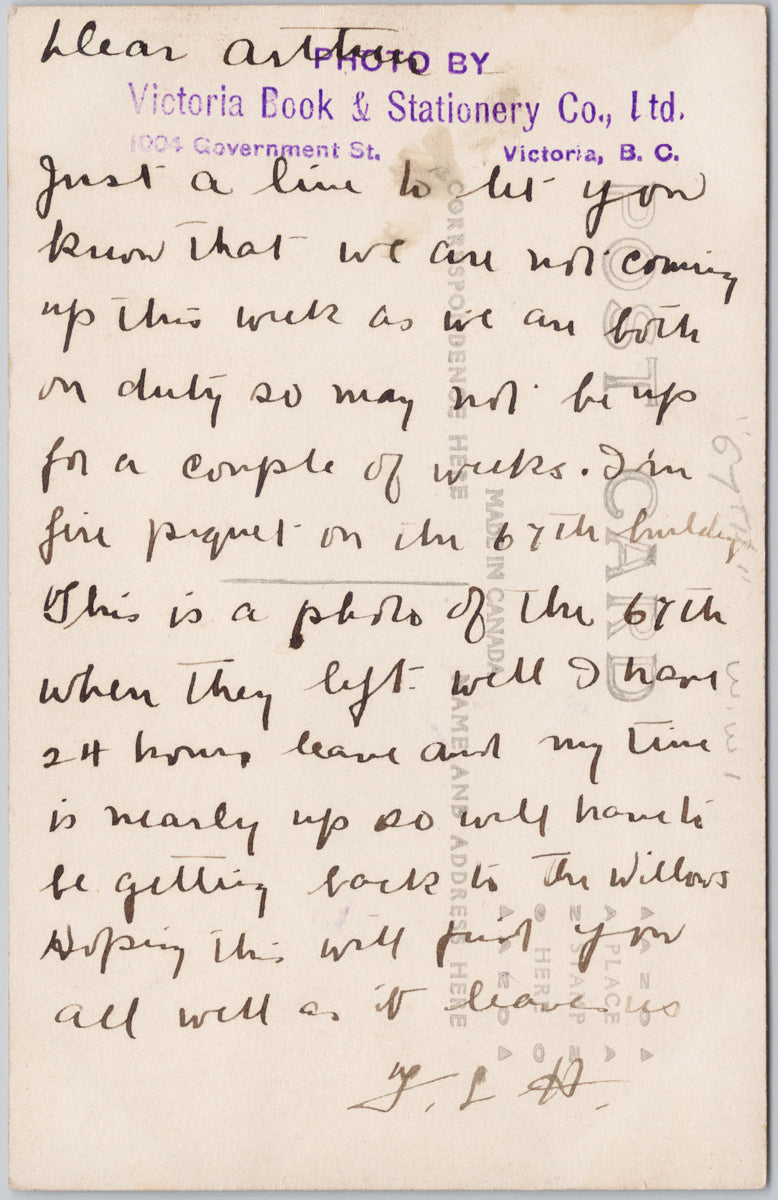 Dear Arthur
PHOTO BY
Victoria Book & Stationery Co., Ltd.
1004 Government St. Victoria, B. C.
Just a line to let you
know that we are not coming
up this week as we are both
on duty so may not be up
for a couple of weeks. I'm
fire piquet on the 67th building
This is a photo of the 67th
when they left. well I have
24 hours leave and my time
is nearly up so will have to
be getting back to the Willows
Hoping this will find you
all well as it leaves us
L H.
POST CARD
CORRESPONDENCE HERE
MADE IN CANADA
NAME AND ADDRESS HERE
AZO
PLACE
STAMP
HERE
AZO
"67TH"
W.W.1